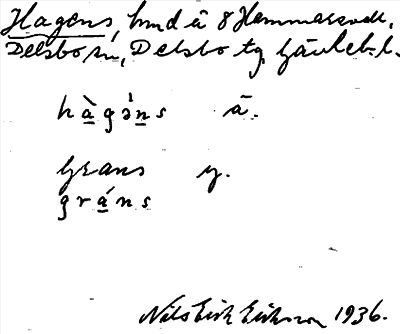 Hagens, hmd å 8 Hammarsvall,
Delsbo sn, Delsbo tg, Gävleb. l.
hà̱gə̀ṉs ä.
Grans y.
grá̱ns
Nils Erik Eriksson 1936.